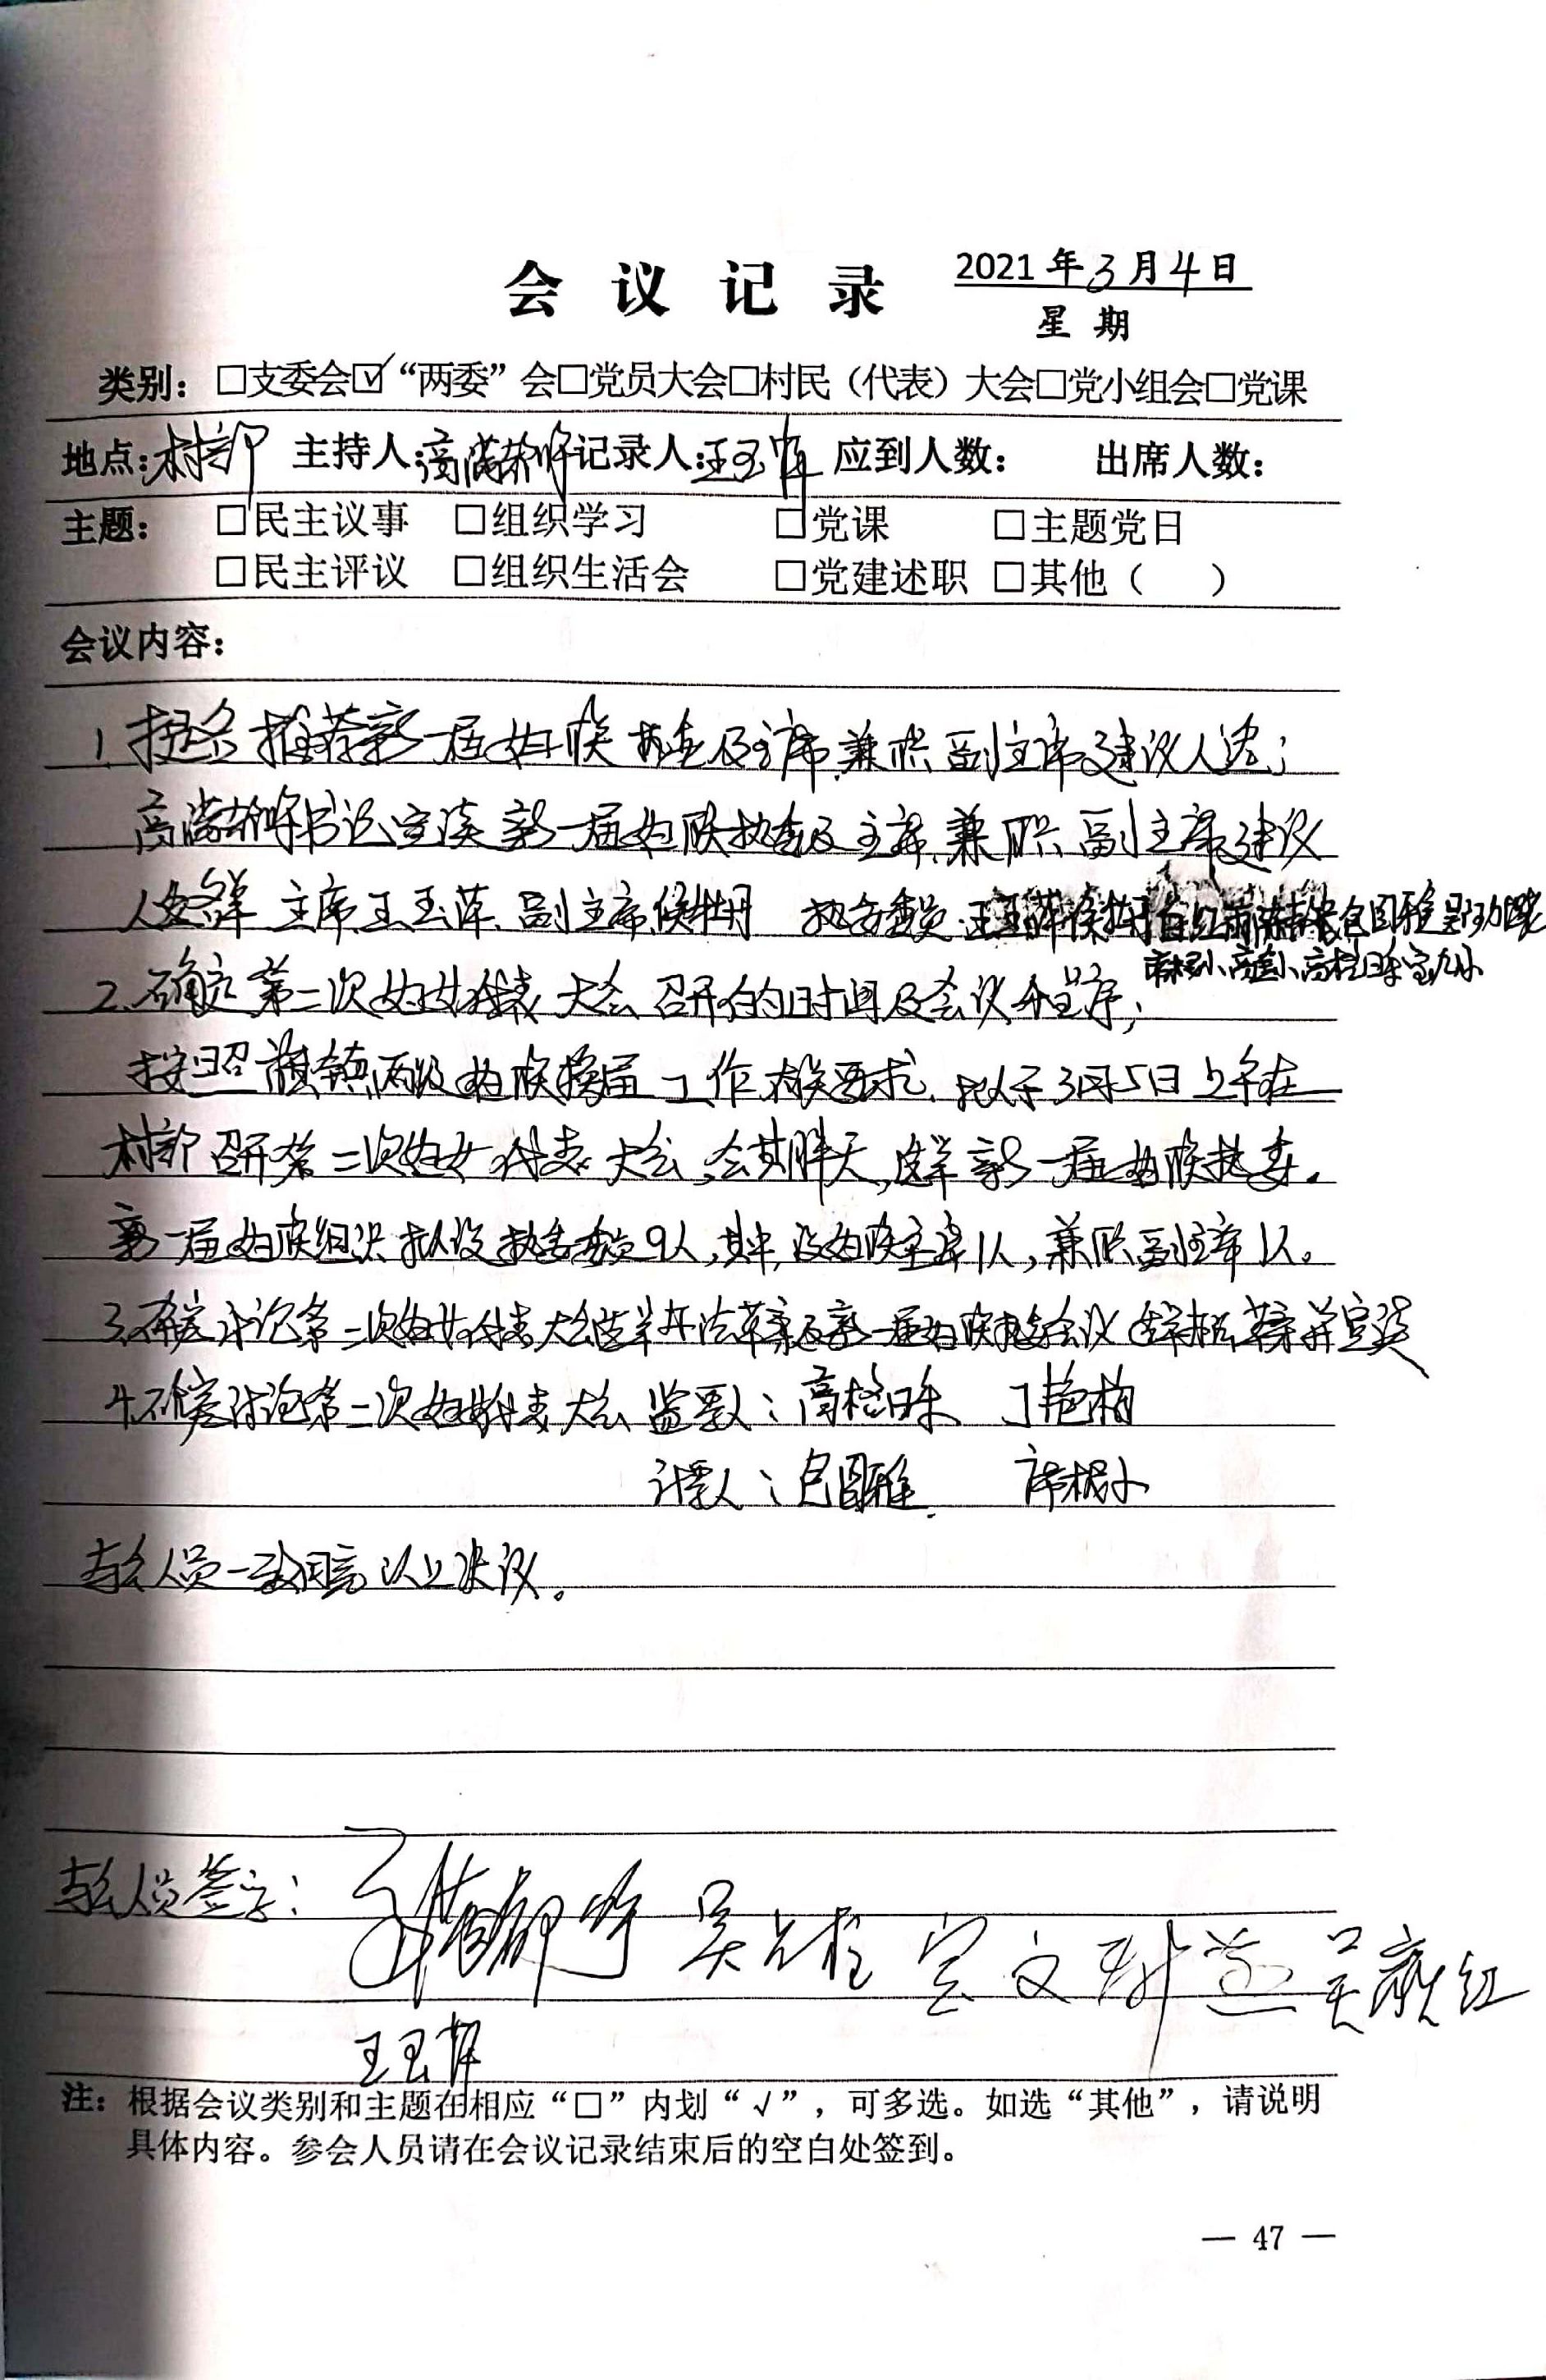 会议记录 2021年3月4日
星期
类别：□支委会☑“两委”会□党员大会□村民（代表）大会□党小组会□党课
地点：村部 主持人：高满都呼 记录人：王玉萍 应到人数： 出席人数：
主题： □民主议事 □组织学习 □党课 □主题党日
□民主评议 □组织生活会 □党建述职 □其他（ ）
会议内容：
1 提名推荐新一届妇联执委及主席、兼职副主席建议人选；
高满都呼书记宣读新一届妇联执委及主席、兼职副主席建议
人选名单 主席王玉萍、副主席侯牡丹 执委委员：王玉萍 侯牡丹
2.确定第二次妇女代表大会召开的时间及会议全程序；
按照旗镇两级妇联换届工作相关要求，拟于3月5日上午在
村部召开第二次妇女代表大会，会期半天，选举新一届妇联执委。
新一届妇联组织拟设执委委员9人，其中，设妇联主席1人，兼职副主席1人。
3.确定讨论第二次妇女代表大会选举办法草案及新一届妇联执委会议选举办法草案并宣读
4.确定讨论第二次妇女代表大会监票人：高格日乐 丁艳梅
计票人：包图雅 席根小
与会人员一致同意以上决议。
与会人员签字： 吴 宝文 吴
王玉萍
注：根据会议类别和主题在相应“□”内划“√”，可多选。如选“其他”，请说明
具体内容。参会人员请在会议记录结束后的空白处签到。
— 47 —